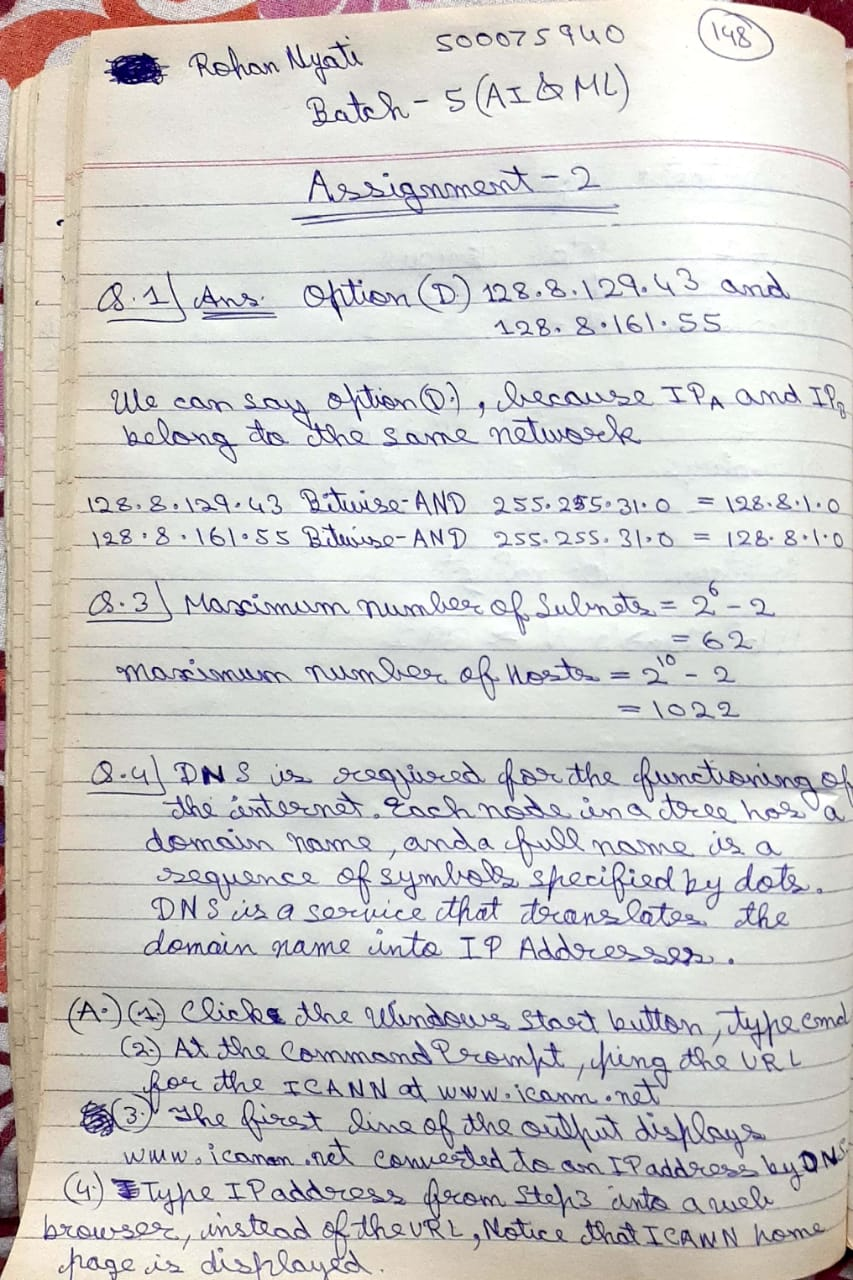 148
Rohan Nyati 500075940
Batch - 5 (AI & ML)
Assignment - 2
Q.1) Ans. Option (D.) 128.8.129.43 and
128.8.161.55
We can say option (D.), because IPA and IPB
belong to the same network
128.8.129.43 Bitwise-AND 255.255.31.0 = 128.8.1.0
128.8.161.55 Bitwise-AND 255.255.31.0 = 128.8.1.0
Q.3) Maximum number of Subnets = 2^6 - 2
= 62
maximum number of Hosts = 2^10 - 2
= 1022
Q.4) DNS is required for the functioning of
the internet. Each node in a tree has a
domain name, and a full name is a
sequence of symbols specified by dots.
DNS is a service that translates the
domain name into IP Addresses.
(A.) (1.) Click the Windows Start button, type cmd
(2.) At the Command Prompt, ping the URL
for the ICANN at www.icann.net
(3.) The first line of the output displays
www.icann.net converted to an IP address by DNS
(4.) Type IP address from Step3 into a web
browser, instead of the URL, Notice that ICANN home
page is displayed.